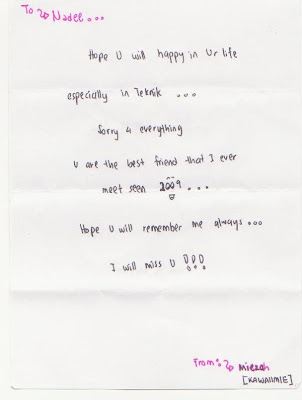 To : Nadee...
Hope U will happy in Ur life
especially in Teknik ...
Sorry 4 everything
U are the best friend that I ever
meet seen 2009 ...
Hope U will remember me always...
I will miss U !!!
From : miezah
[KAWAIIMIE]